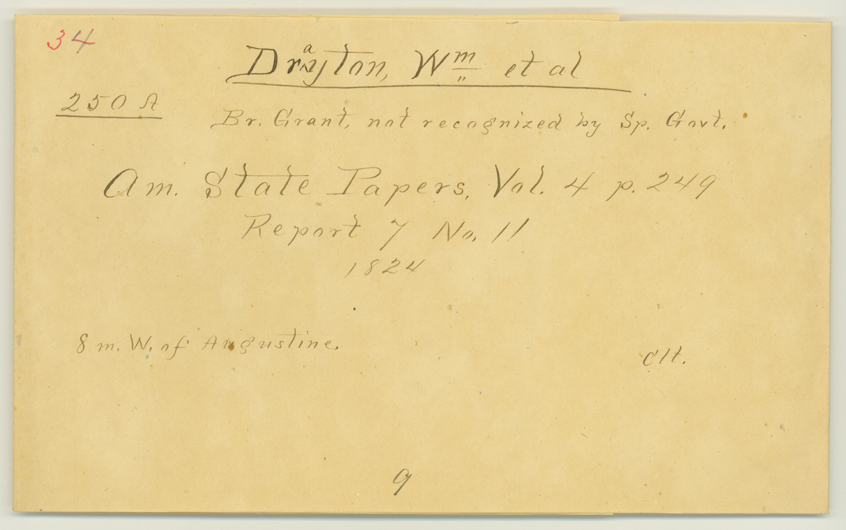 34
Drayton, Wm et al
250 A
Br. Grant, not recognized by Sp. Govt.
Am. State Papers, Vol. 4 p. 249
Report 7 No. 11
1824
8 m. W. of Augustine.
9